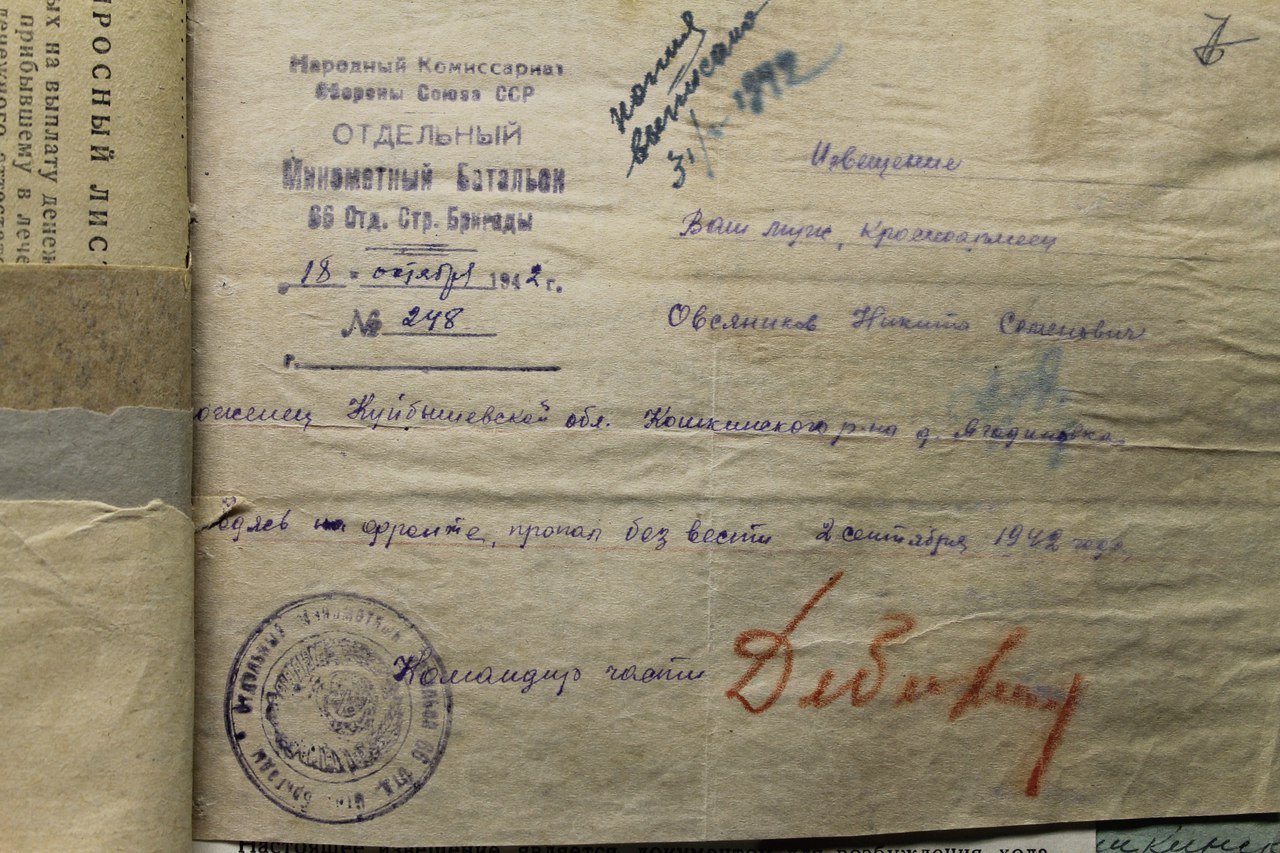 РОСНЫЙ ЛИС
ых на выплату денеж
прибывшему в лече
денежного аттестат
Народный Комиссариат
Обороны Союза ССР
ОТДЕЛЬНЫЙ
Минометный Батальон
66 Отд. Стр. Бригады
"18" октября 1942 г.
№ 248
г.
копия
выписана
1942
Извещение
Ваш муж, красноармеец
Овсяников Никита Семенович
оженец Куйбышевской обл. Кошкинского р-на д. Ягодиновка
одясь на фронте, пропал без вести 2 сентября 1942 года,
Командир части
Настоящее извещение является документом для возбуждения хода